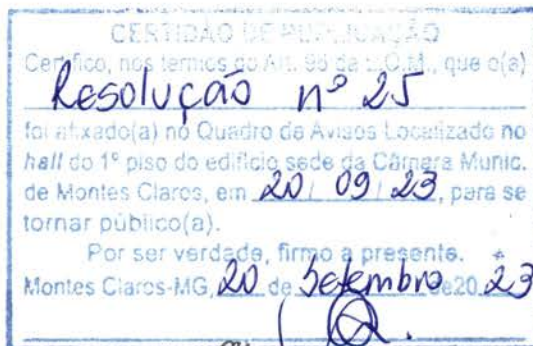 CERTIDÃO DE PUBLICAÇÃO
Certifico, nos termos do Art. 96 da L.O.M., que o(a)
Resolução nº 25
foi afixado(a) no Quadro de Avisos Localizado no
hall do 1º piso do edifício sede da Câmara Munic.
de Montes Claros, em 20/ 09/ 23, para se
tornar público(a).
Por ser verdade, firmo a presente.
Montes Claros-MG, 20 de Setembro de20 23